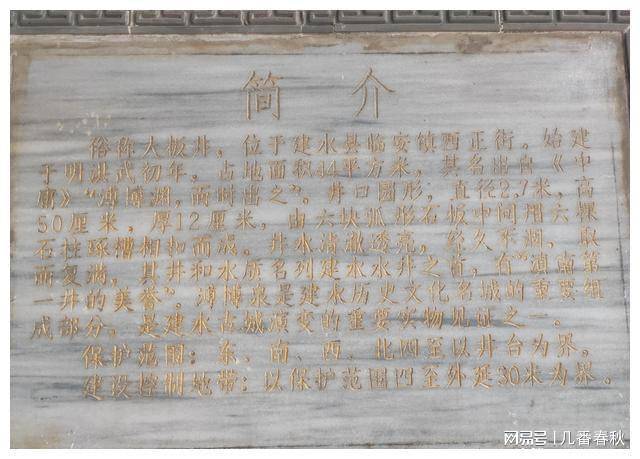 简 介
俗称大板井，位于建水县临安镇西正街。始建
于明洪武初年，占地面积44平方米，其名出自《中
庸》“溥博渊，而时出之”。井口圆形，直径2.7米，高
50厘米，厚12厘米，由六块弧形石板中间用六棵
石柱琢槽相扣而成。井水清澈透亮，经久不涸，取
而复满，其井和水质名列建水水井之首，有“滇南第
一井的美誉”。溥博泉是建水历史文化名城的重要组
成部分，是建水古城演变的重要实物见证之一。
保护范围：东、南、西、北四至以井台为界。
建设控制地带：以保护范围四至外延30米为界。
搜狐号@几番春秋